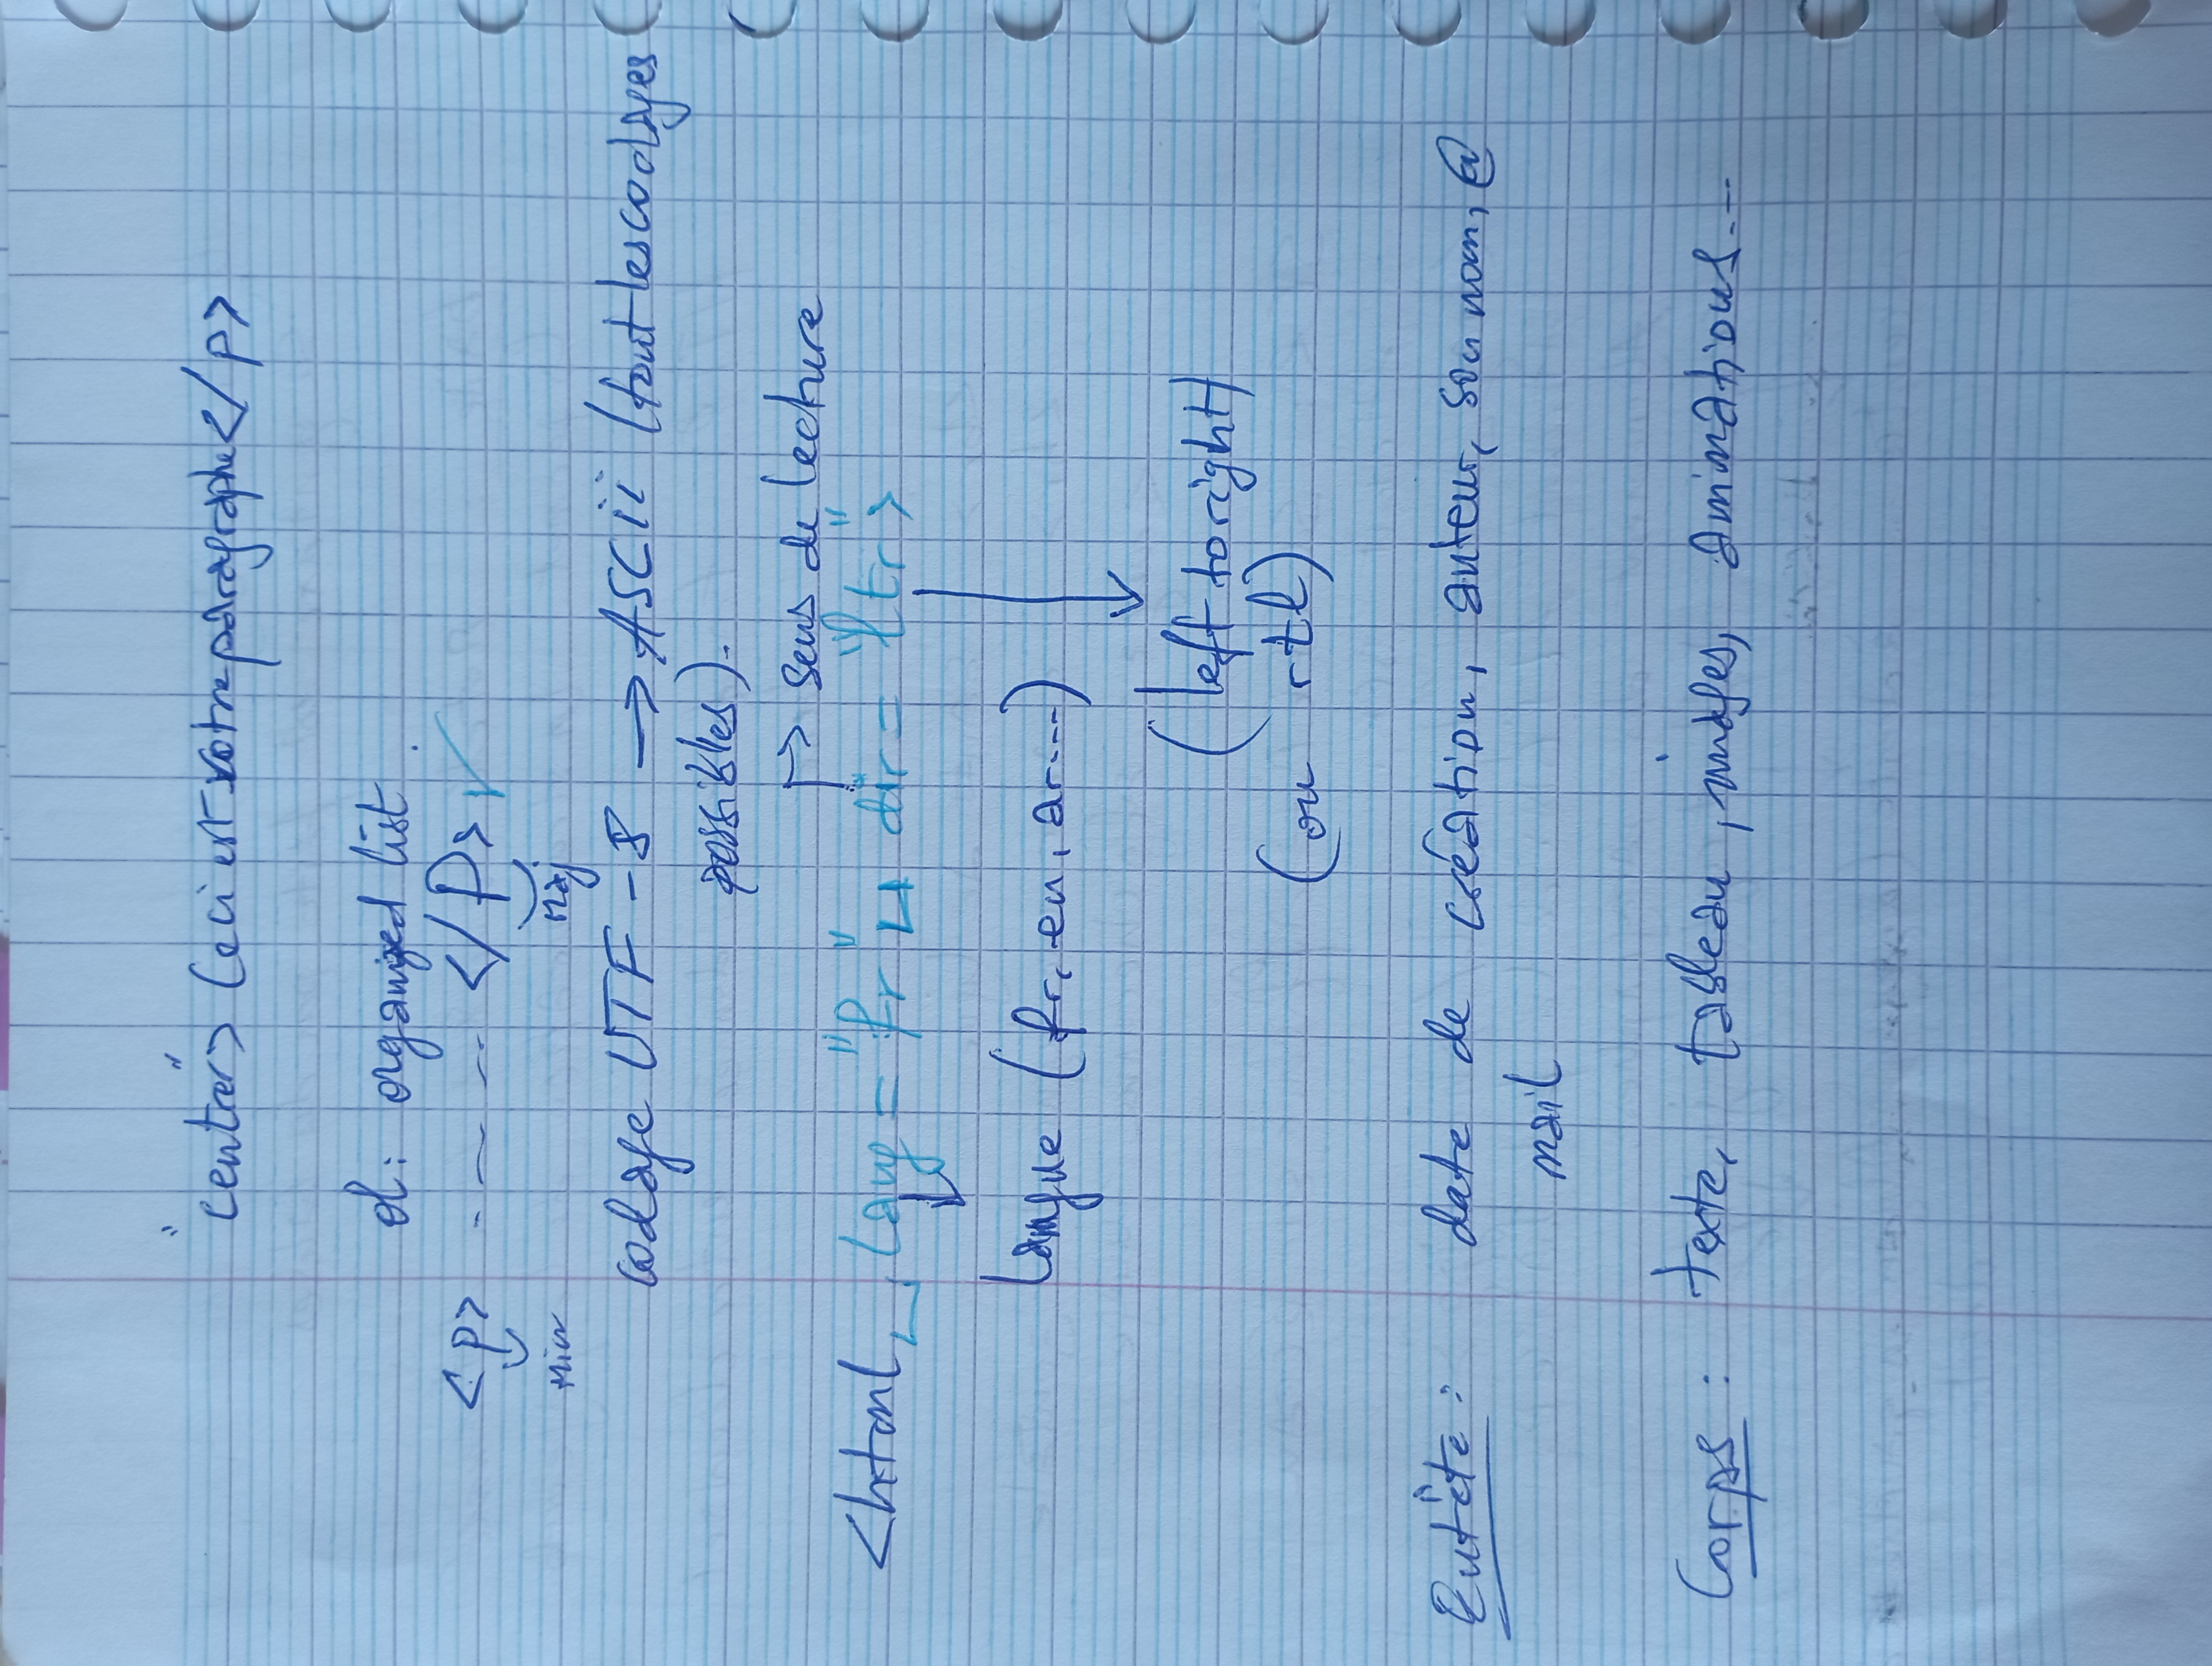 "center"> Ceci est votre paragraphe</p>
ol: organized list.
<p> ----- </P> ✓
min
maj
codage UTF-8 → ASCii (tout les codages
possibles).
→ sens de lecture
<html␣lang="fr"␣dir="ltr">
langue (fr, en, ar...)
(left to right)
(ou rtl)
Entête: date de création, auteur, son nom, @
mail
Corps: texte, tableau, images, animations...